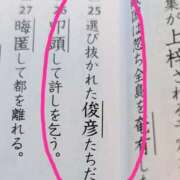 集が上梓され
全島を奄有し
25 選び抜かれた俊彦たちだ
26 叩頭して許しを乞う。
27 晦匿して都を離れる。